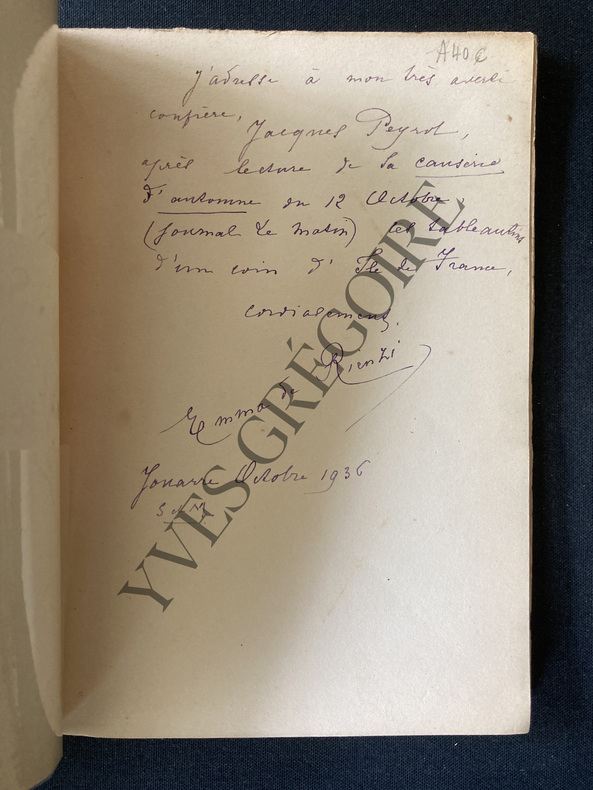 A40€
J'adresse à mon très averti
confrère,
Jacques Peyrol,
après lecture de sa causerie
d'automne du 12 Octobre
(Journal Le Matin) ces tableautins
d'un coin d'Ile de France,
cordialement,
Emma de Rienzi
Jouarre Octobre 1936
S et M
YVES GRÉGOIRE